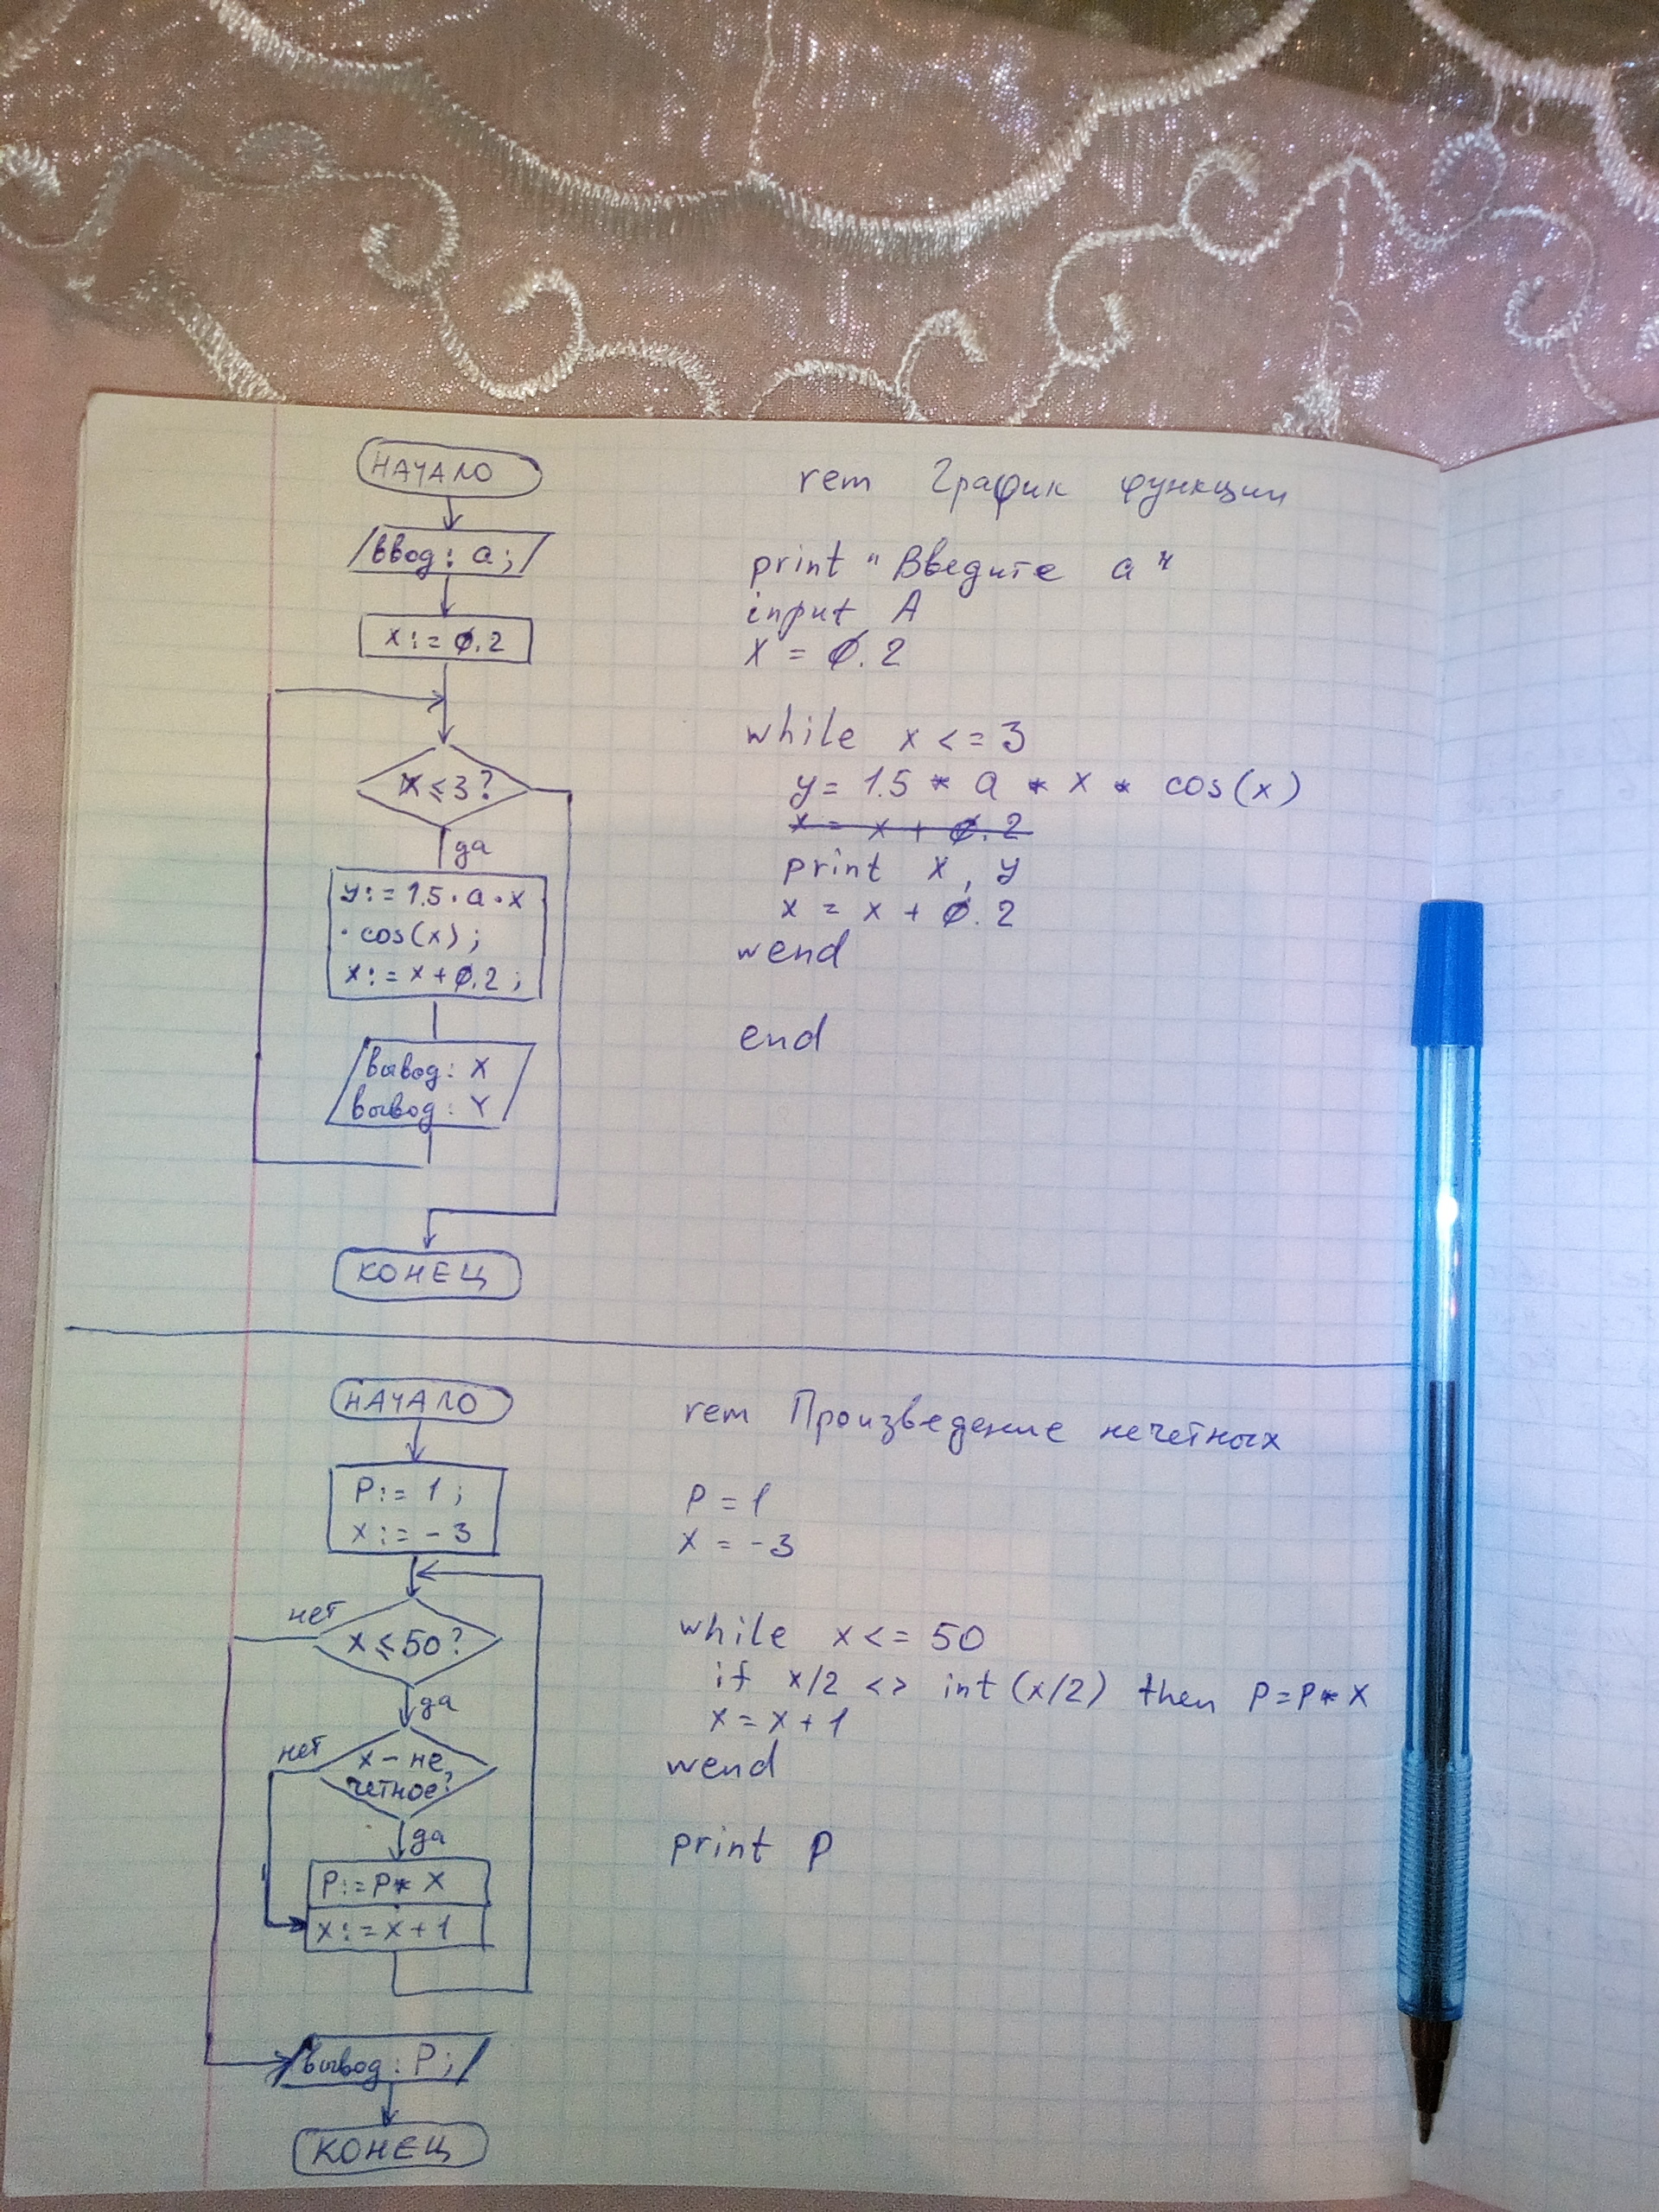 НАЧАЛО
ввод: a;
x := 0.2
x ≤ 3?
да
y := 1.5 · a · x
· cos(x);
x := x + 0.2;
вывод: X
вывод: Y
КОНЕЦ
rem График функции
print "Введите a"
input A
x = 0.2
while x <= 3
y = 1.5 * a * x * cos(x)
x = x + 0.2
print x, y
x = x + 0.2
wend
end
НАЧАЛО
P := 1;
x := -3
нет
x ≤ 50?
да
нет
x - не
четное?
да
P := P * X
x := x + 1
вывод: P;
КОНЕЦ
rem Произведение нечетных
P = 1
X = -3
while x <= 50
if x/2 <> int(x/2) then P=P*X
x = x + 1
wend
print P